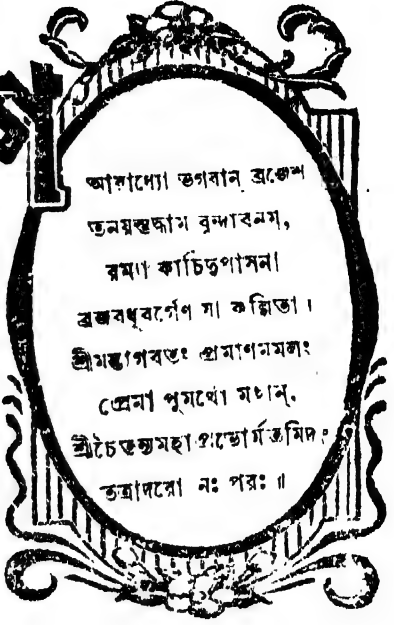 আরাধ্যো ভগবান্ ব্রজেশ
তনয়স্তদ্ধাম বৃন্দাবনম্,
রম্যা কাচিদুপাসনা
ব্রজবধূবর্গেণ যা কল্পিতা।
শ্রীমদ্ভাগবতং প্রমাণমমলং
প্রেমা পুমর্থো মহান্,
শ্রীচৈতন্যমহাপ্রভোর্মতমিদং
তত্রাদরো নঃ পরঃ॥